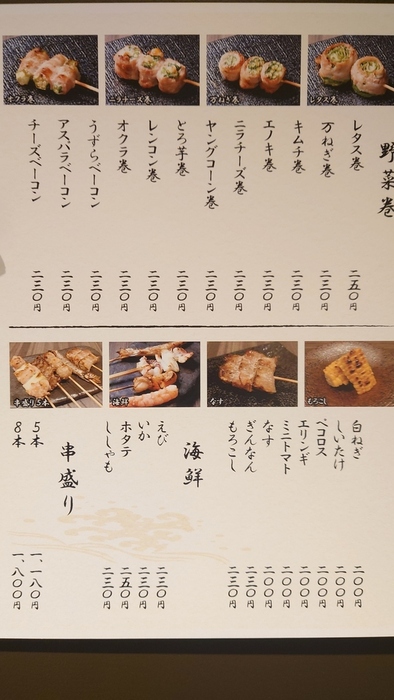 野菜巻
レタス巻 二五〇円
万ねぎ巻 二三〇円
キムチ巻 二三〇円
エノキ巻 二三〇円
ニラチーズ巻 二三〇円
ヤングコーン巻 二三〇円
とろ芋巻 二三〇円
レンコン巻 二三〇円
オクラ巻 二三〇円
うずらベーコン 二三〇円
アスパラベーコン 二三〇円
チーズベーコン 二三〇円
オクラ巻
ニラチーズ巻
万ねぎ巻
レタス巻
串盛り5本
海鮮
なす
もろこし
白ねぎ 二〇〇円
しいたけ 二〇〇円
ペコロス 二〇〇円
エリンギ 二〇〇円
ミニトマト 二〇〇円
なす 二〇〇円
ぎんなん 二三〇円
もろこし 二三〇円
海鮮
えび 二三〇円
いか 二三〇円
ホタテ 二五〇円
ししゃも 二三〇円
串盛り
5本 一、一八〇円
8本 一、八〇〇円